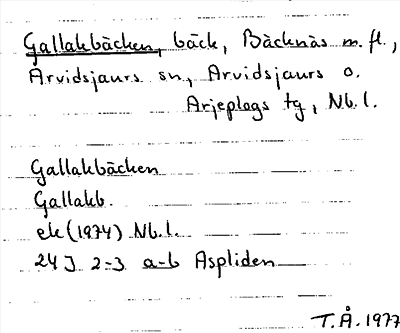 Gallakbäcken, bäck, Bäcknäs m.fl.,
Arvidsjaurs sn, Arvidsjaurs o.
Arjeplogs tg, Nb.l.
Gallakbäcken
Gallakb.
ek (1974) Nb.l.
24J 2-3 a-b Aspliden
T.Å. 1977